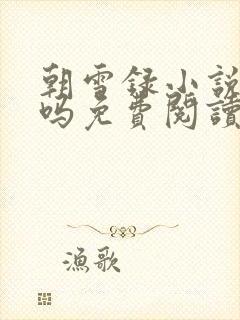 朝雪録小説
嗎免費閱讀
漁歌